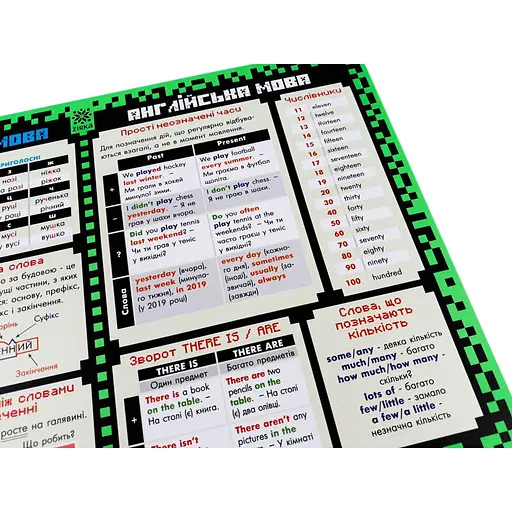 ZIRKA
АНГЛІЙСЬКА МОВА
МОВА
ПРИГОЛОСНІ
з ж
ніжка
ріжок
ц ч
рученька
річний
с ш
мусі мушка
вусі вушко
слова
за будовою - це
основу, префікс,
с і закінчення.
Суфікс
Закінчення
між словами
реченні
росте на галявині.
Що робить?
Прості неозначені часи
Для позначення дій, що регулярно відбува-
ються взагалі, а не в момент мовлення.
Past Present
+
We played hockey
last winter. –
Ми грали в хокей
минулої зими.
We play football
every summer. –
Ми граємо в футбол
щоліта.
-
I didn't play chess
yesterday. – Я не
грав у шахи вчора.
I don't play chess.
– Я не граю в шахи.
?
Did you play tennis
last weekend? –
Чи ти грав у теніс
у вихідні?
Do you often
play tennis at the
weekend? – Чи ти
часто граєш у теніс
у вихідні?
Слова
yesterday (вчора),
last week (минуло-
го тижня), in 2019
(у 2019 році)
every day (кожно-
го дня), sometimes
(іноді), usually (за-
звичай), always
(завжди)
Числівники
11 eleven
12 twelve
13 thirteen
14 fourteen
15 fifteen
16 sixteen
17 seventeen
18 eighteen
19 nineteen
20 twenty
30 thirty
40 forty
50 fifty
60 sixty
70 seventy
80 eighty
90 ninety
100 hundred
Зворот THERE IS / ARE
THERE IS THERE ARE
Один предмет Багато предметів
+
There is a book
on the table. –
На столі (є) книга.
There are two
pencils on the
table. – На столі
(є) два олівці.
There isn't
There aren't any
pictures in the
– У кімнаті
Слова, що
позначають
кількість
some/any - деяка кількість
much/many - багато
how much/how many -
скільки?
lots of - багато
few/little - замало
a few/a little -
незначна кількість